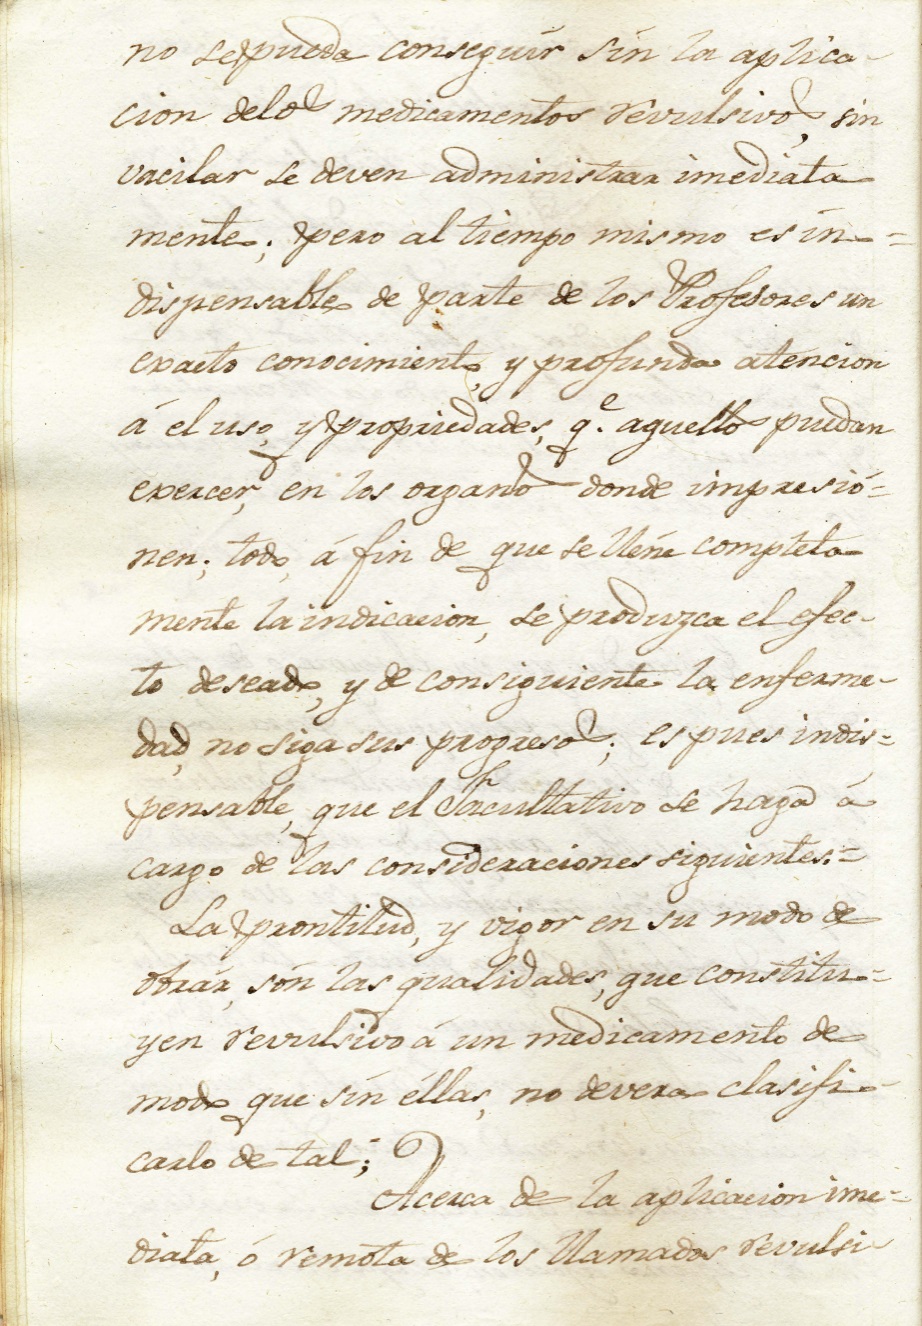 no se pueda conseguir sin la aplica-
cion delos medicamentos revulsivos, sin
vacilar se deven administrar imediata
mente; pero al tiempo mismo es in=
dispensable de parte de los Profesores un
exacto conocimiento, y profunda atencion
á el uso, y propriedades, q.e aquellos puedan
exercer, en los organos donde impresió=
nen; todo, á fin de que se lléne completa
mente la indicacion, se produzca el efec-
to deseado, y de consiguiente la enferme-
dad, no siga sus progresos; es pues indis=
pensable, que el Facultativo se haga á
cargo de las consideraciones siguientes:=
La prontitud, y vigor en su modo de
obrár, són las qualidades, que constitu=
yen revulsivo á un medicamento de
modo que sín éllas, no devera clasifi-
carlo de tal;
Acerca de la aplicacion ime=
diata, ó remota de los llamados revulsi-